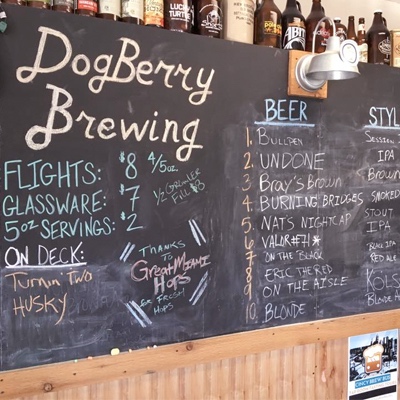 DogBerry
Brewing
FLIGHTS: $8 4/5oz
GLASSWARE: $7
5oz SERVINGS: $2
1/2 GROWLER
FILL $8
ON DECK:
Turnin' Two
HUSKY
THANKS TO
Great Miami
HOPS
for Fresh
Hops
BEER
1. Bullpen
2. UNDONE
3. Bray's Brown
4. BURNING BRIDGES
5. NAT'S NIGHTCAP
6 VALOR #7! *
7 ON THE BLACK
8 ERIC THE RED
9 ON THE AISLE
10. BLONDE
STYL
SESSION
IPA
Brown
SMOKED
STOUT
IPA
BLACK IPA
RED ALE
KOLS
BLONDE
CINCY BREW BUS